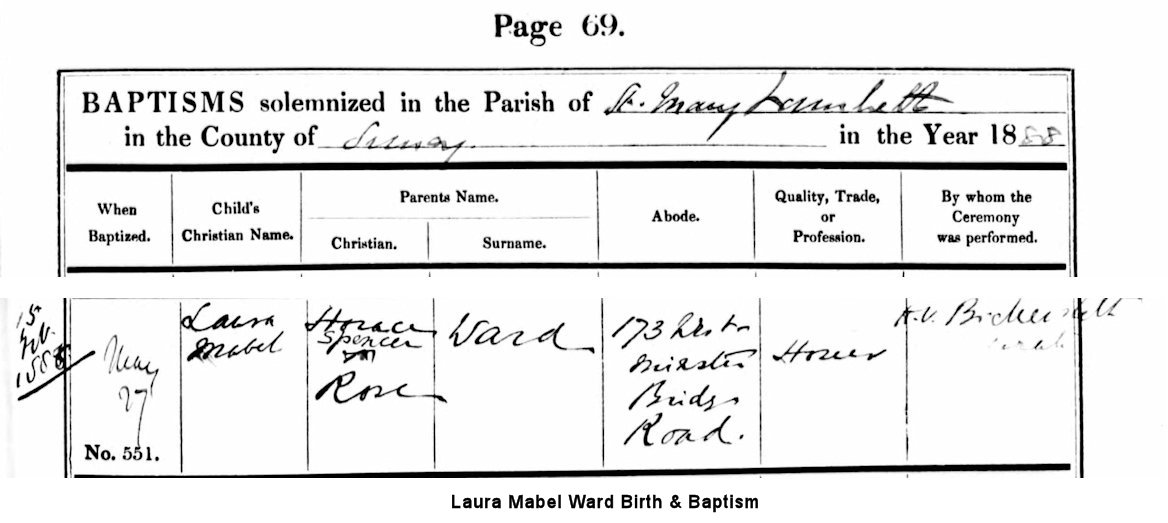 Page 69.
BAPTISMS solemnized in the Parish of St. Mary Lambeth
in the County of Surrey in the Year 1888
When
Baptized.
Child's
Christian Name.
Parents Name.
Christian.
Surname.
Abode.
Quality, Trade,
or
Profession.
By whom the
Ceremony
was performed.
15
1888
May
27
No. 551.
Laura
Mabel
Horace
Spencer
Rose
Ward
173 West
minster
Bridge
Road.
Hosier
H.V. Bickersteth
Laura Mabel Ward Birth & Baptism